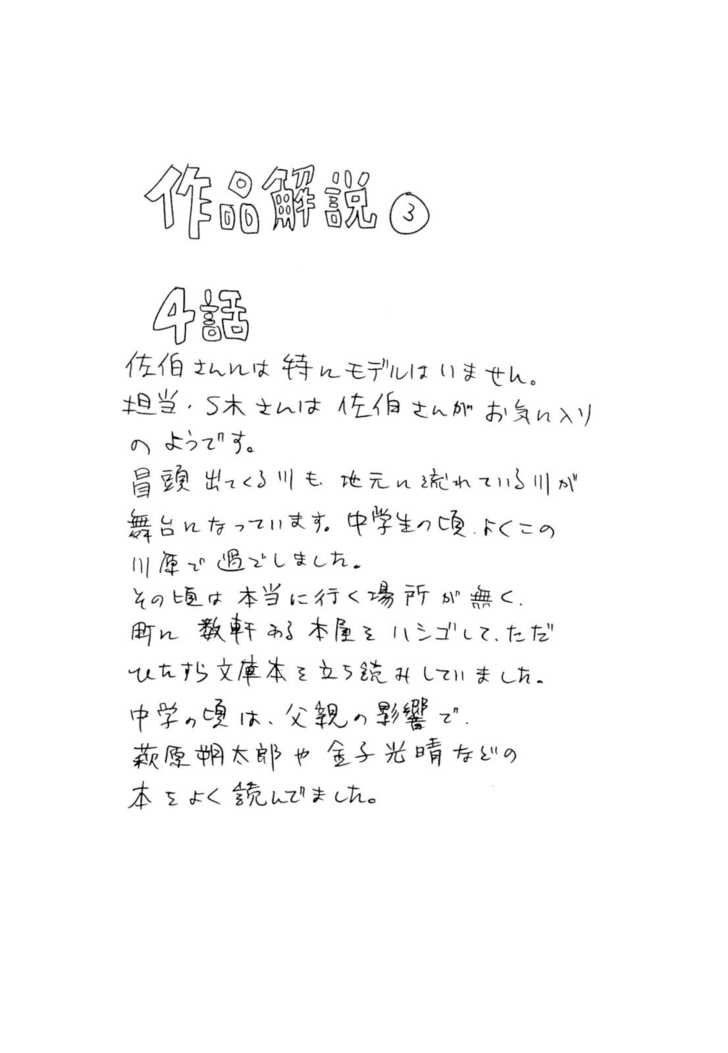 作品解説③
4話
佐伯さんには特にモデルはいません。
担当・S木さんは佐伯さんがお気に入り
のようです。
冒頭出てくる川も、地元に流れている川が
舞台になっています。中学生の頃、よくこの
川原で過ごしました。
その頃は本当に行く場所が無く、
町に数軒ある本屋をハシゴして、ただ
ひたすら文庫本を立ち読みしていました。
中学の頃は、父親の影響で、
萩原朔太郎や金子光晴などの
本をよく読んでました。